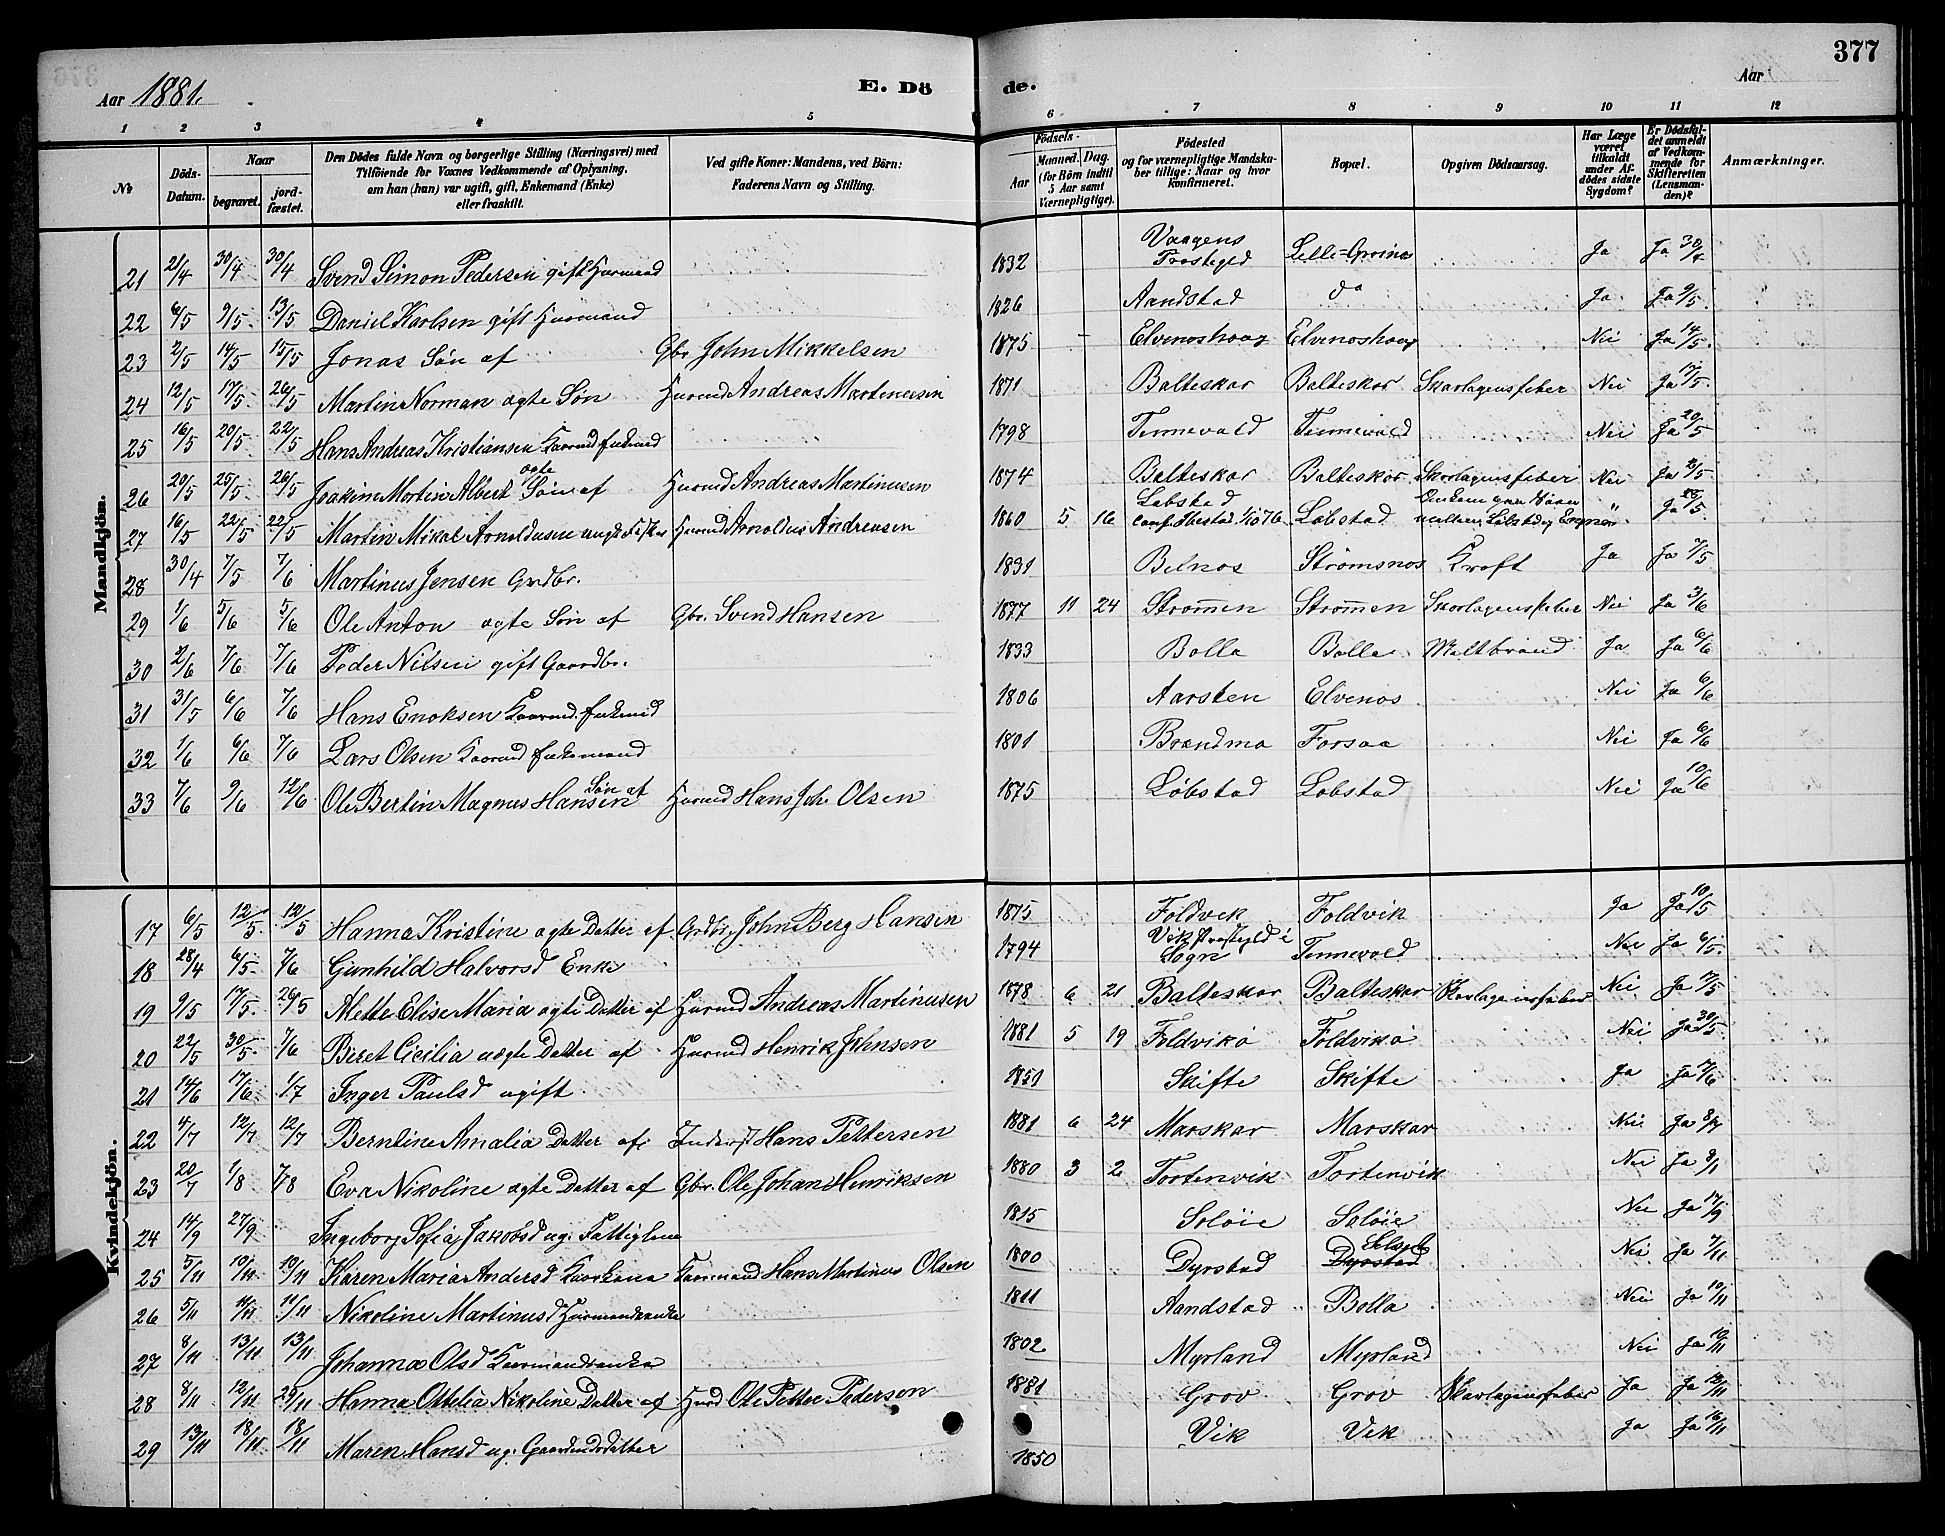 377
Aar 1881. E. Dö de. Aar
1 2 3 4 5 6 7 8 9 10 11 12
No
Döds-Datum.
Naar begravet. jordfæstet.
Den Dödes fulde Navn og borgerlige Stilling (Næringsvei) med Tilföiende for Voxnes Vedkommende af Oplysning, om han (hun) var ugift, gift, Enkemand (Enke) eller fraskilt.
Ved gifte Koner: Mandens, ved Börn: Faderens Navn og Stilling.
Födsels-
Aar Maaned. Dag. (for Börn indtil 5 Aar samt Værnepligtige).
Födested og for værnepligtige Mandskaber tillige: Naar og hvor konfirmeret.
Bopæl.
Opgiven Dödsaarsag.
Har Læge været tilkaldt under Afdödes sidste Sygdom?
Er Dödsfaldet anmeldt af Vedkommende for Skifteretten (Lensmanden)?
Anmærkninger.
Mandkjön.
21 21/4 30/4 30/4 Svend Simon Pedersen gift Husmand 1832 Vaagens Prestegjd Lille= Ja Ja 30/4
22 6/5 9/5 13/5 Daniel Karlsen gift Husmand 1826 Aandstad do Ja Ja 9/5
23 2/5 14/5 15/5 Jonas Søn af Gbr. John Mikkelsen 1875 Elvenoshaag Elvenoshaag Nei Ja 14/5
24 12/5 17/5 26/5 Martin Norman ægte Søn Husmd Andreas Martinussen 1871 Balteskar Balteskar Skarlagensfeber Nei Ja 17/5
25 16/5 20/5 22/5 Hans Andreas Kristiansen Kaarmd Enkemd 1798 Tennevold Tennevold Nei Ja 20/5
26 20/5 25/5 26/5 Joakim Martin Albert ægte Søn af Husmd Andreas Martinusen 1874 Balteskar Balteskar Skarlagensfeber Nei Ja
27 16/5 22/5 22/5 Martin Mikal Arnoldusen Husmd Arnoldus Andreasen 1860 5 16 Løbstad conf. Ibestad Løbstad Omkom paa Søen mellem Løbstad og Ja
28 30/4 7/5 7/6 Martinus Jensen Grdbr. 1831 Belnos Strømsnos Kræft Ja Ja 7/5
29 1/6 5/6 5/6 Ole Anton ægte Søn af Gbr. Svend Hansen 1877 11 24 Strømen Strømen Skarlagensfeber Nei Ja 3/6
30 2/6 7/6 7/6 Peder Nilsen gift Gaardbr. 1833 Bolla Bolla Miltbrand Ja Ja 6/6
31 31/5 6/6 7/6 Hans Enoksen Kaarmd. Enkemd 1806 Aarsten Elvenos Nei Ja 6/6
32 1/6 6/6 7/6 Lars Olsen Kaarmd Enkemand 1801 Brandmo Forsaa Nei Ja 6/6
33 7/6 9/6 12/6 Ole Bertin Magnus Hansen Søn af Husmd Hans Joh. Olsen 1875 Løbstad Løbstad Nei Ja 10/6
Kvindekjön.
17 6/5 12/5 12/5 Hanna Kristine ægte Datter af Grdbr. John Berg Hansen 1875 Foldvik Foldvik Ja Ja 10/5
18 28/4 6/5 7/6 Gunhild Halvorsd Enke 1794 Vik Prestgjld i Sogn Tennevold Nei Ja 6/5
19 9/5 17/5 26/5 Mette Elise Maria ægte Datter af Husmd Andreas Martinusen 1878 6 21 Balteskar Balteskar Skarlagensfeber Nei Ja 17/5
20 22/5 30/5 7/6 Beret Cicilia uægte Datter af Husmd Henrik Johnsen 1881 5 19 Foldvikø Foldvikø Nei Ja 30/5
21 14/6 17/6 1/7 Inger Paulsd ugift 1851 Skifte Skifte Ja Ja 17/6
22 4/7 12/7 12/7 Berntine Amalia Datter af Inderst Hans Pettersen 1881 6 24 Marskar Marskar Nei Ja 8/7
23 20/7 1/8 7/8 Eva Nikoline ægte Datter af Gbr. Ole Johan Henriksen 1880 3 2 Tortenvik Tortenvik Nei Ja
24 14/9 27/9 Ingeborg Sofia Jakobsd ug. Fattiglem 1815 Soløie Soløie Nei Ja 17/9
25 5/11 10/11 10/11 Karen Maria Andersd Kaarkona Kaarmand Hans Martinus Olsen 1800 Dyrstad Dyrstad Nei Ja 7/11
26 5/11 11/11 11/11 Nikoline Martinusd Husmandsenke 1811 Aandstad Bolla Nei Ja 10/11
27 8/11 13/11 13/11 Johanna Olsd Kaarmandsenke 1802 Myrland Myrland Nei Ja 10/11
28 8/11 12/11 29/11 Hanna Ottelia Nikoline Datter af Husd Ole Petter Pedersen 1881 Grov Grov Skarlagensfeber Ja Ja 12/11
29 13/11 18/11 18/11 Maren Hansd ug. Gaardmdsdatter 1850 Vik Vik Ja Ja 16/11